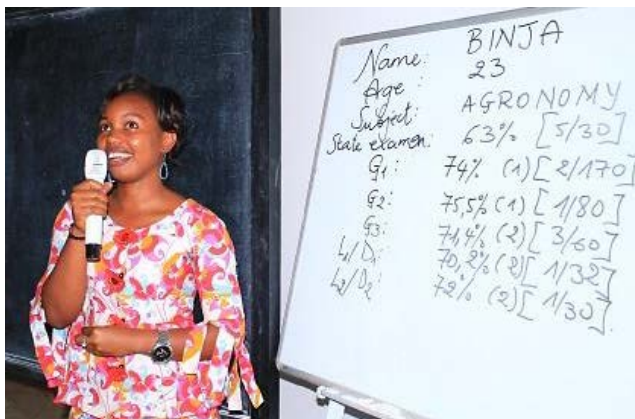 Name: BINJA
Age: 23
Subject: AGRONOMY
State examen: 63% [5/30]
G1: 74% (1) [2/170]
G2: 75,5% (1) [1/80]
G3: 71,4% (2) [3/60]
L1/D1: 70,2% (2) [1/32]
L2/D2 72% (2) [1/30]